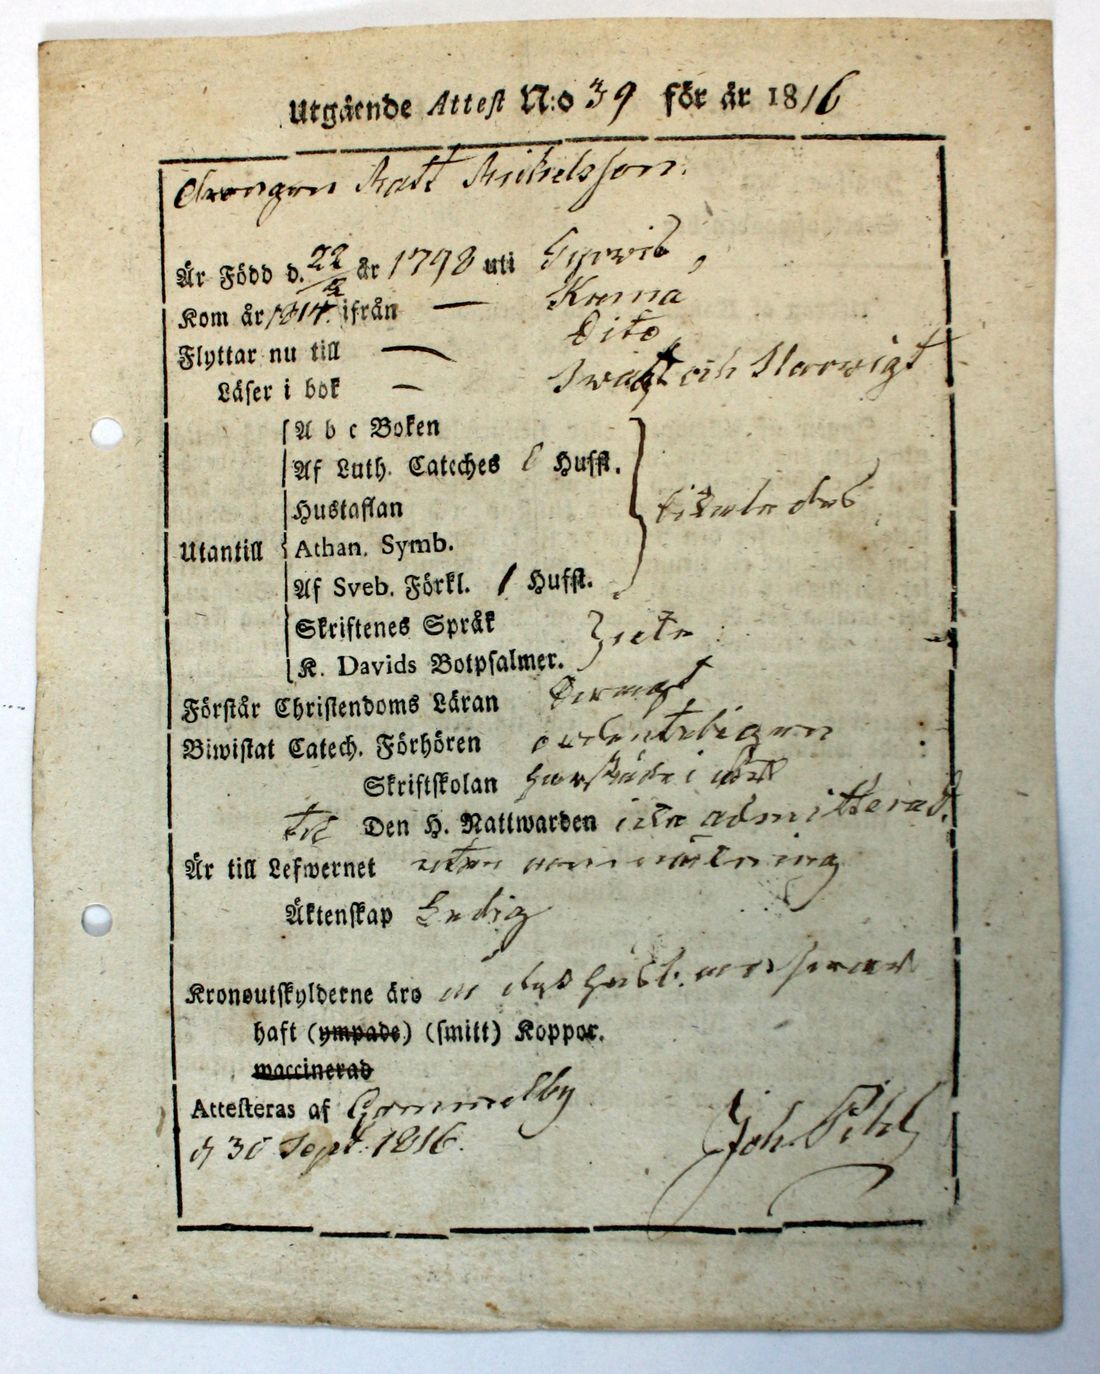 Utgående Attest N:o 39 för år 1816
Drengen Matt Michelsson.
Är Född d. 22 år 1798 uti
Kom år 1814 ifrån — Kumo
Flyttar nu till — Dito
Läser i bok — Swagt och Norwigt
A b c Boken
Af Luth. Cateches Hufst.
Hustaflan
Utantill Athan. Symb.
Af Sveb. Förkl. 1 Hufst.
Skriftenes Språk
K. Davids Botpsalmer. icke
Förstår Christendoms Läran Swagt
Biwistat Catech. Förhören ordenteligen
Skriftskolan i
till Den H. Nattwarden icke admitterad.
Är till Lefwernet utan anmärkning
Äktenskap Ledig
Kronoutskylderne äro
haft (ympade) (smitt) Koppor.
waccinerad
Attesteras af Gammelby
d 30 Sept. 1816. Joh. Pihl